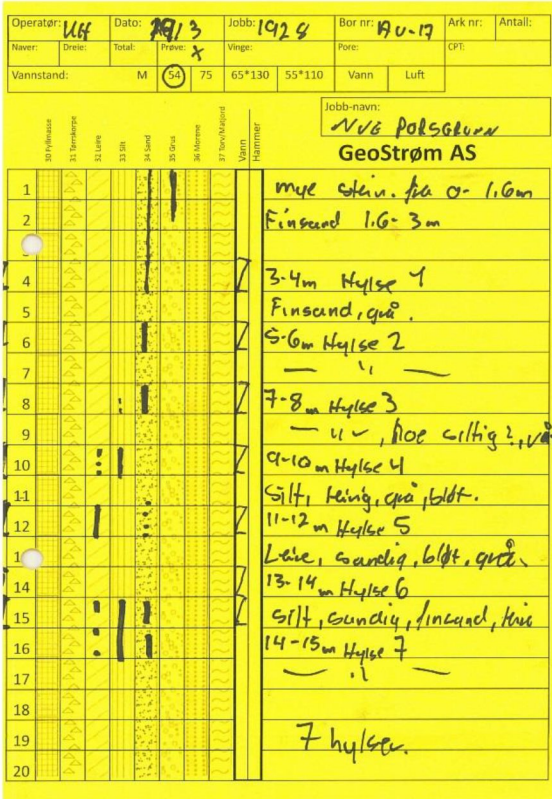 Operatør: UH Dato: 29/3 Jobb: 1928 Bor nr: AU-17 Ark nr: Antall:
Naver: Dreie: Total: Prøve: X Vinge: Pore: CPT:
Vannstand: M 54 75 65*130 55*110 Vann Luft
Jobb-navn:
NVE PORSGRUNN
GeoStrøm AS
30 Fyllmasse 31 Tørrskorpe 32 Leire 33 Silt 34 Sand 35 Grus 36 Morene 37 Torv/Matjord Vann Hammer
1 mye stein. fra 0- 1,6m
2 Finsand 1.6- 3m
4 3-4m Hylse 1
5 Finsand, grå.
6 5-6m Hylse 2
7 — " —
8 7-8m Hylse 3
9 — " —, Noe siltig?,
10 9-10m Hylse 4
11 Silt, leirig, grå, bløt.
12 11-12m Hylse 5
1 Leire, sandig, bløt, grå.
14 13-14m Hylse 6
15 Silt, sandig, finsand,
16 14-15m Hylse 7
17 — " —
18
19 7 hylser.
20